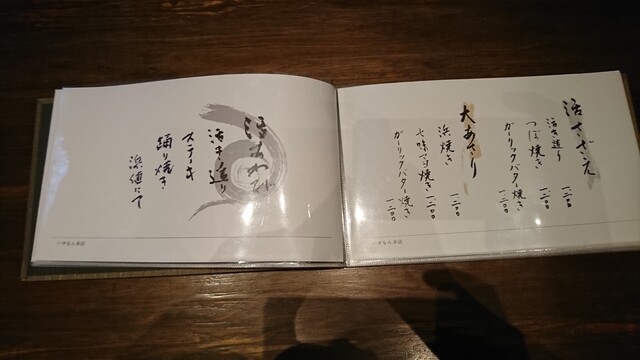 活さざえ
活き造り 一二〇〇
つぼ焼き 一二〇〇
ガーリックバター焼き 一二〇〇
大あさり
浜焼き 一二〇〇
七味マヨ焼き 一二〇〇
ガーリックバター焼き 一二〇〇
活あわび
活き造り
ステーキ
踊り焼き
浜値にて